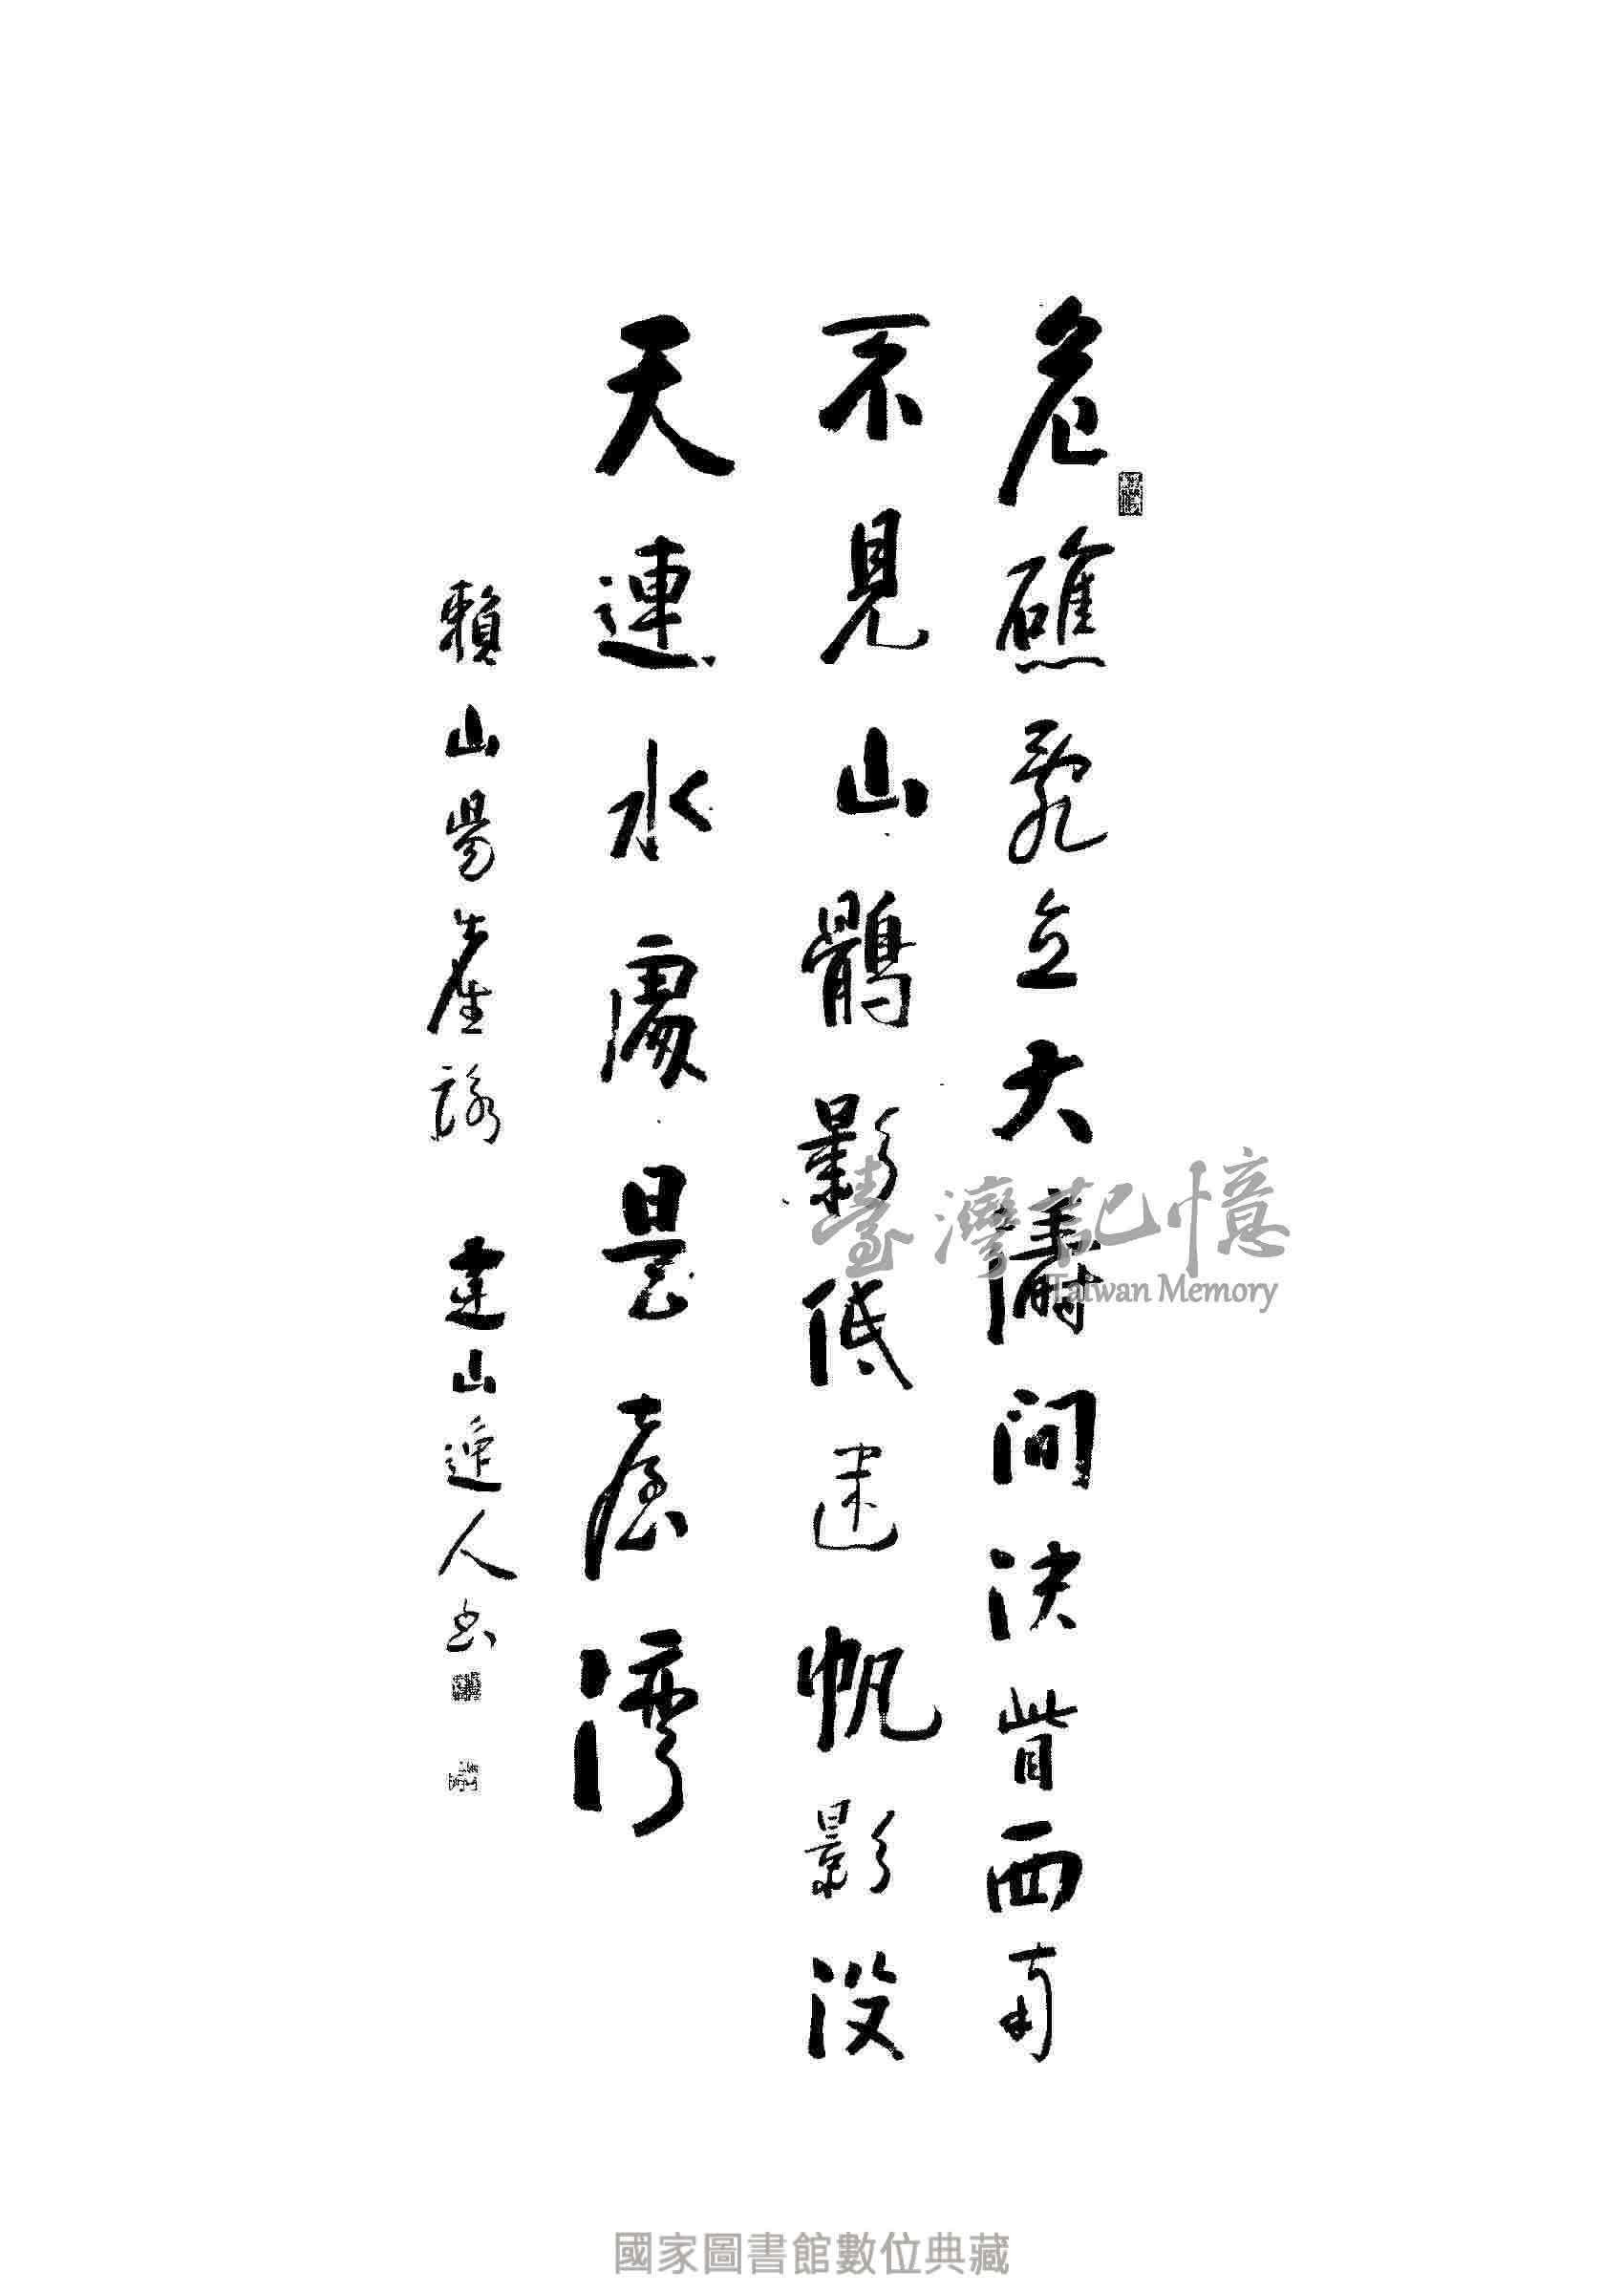 危礁亂立大濤間決眥西南
不見山鶻影低迷帆影沒
天連水處是臺灣
賴山陽 詠 建山逸人書
臺灣記憶
Taiwan Memory
國家圖書館數位典藏